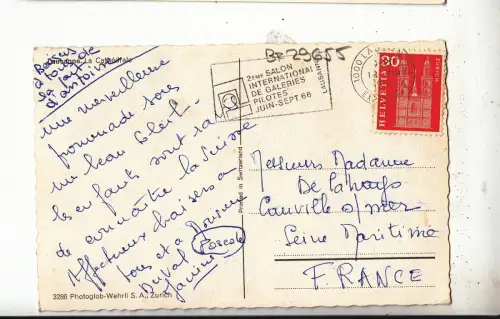 Lausanne, La Cathédrale
Baisers
à tous de
la part
d'antoine
une merveilleuse
promenade sous
un beau soleil
les enfants sont ravis
de connaître la Suisse
Affectueux baisers à
tous et a
Duval Pascale
Janine
3286 Photoglob-Wehrli S. A., Zürich
Printed in Switzerland
BF 29655
2ème SALON
INTERNATIONAL
DE GALERIES
PILOTES
JUIN-SEPT 66
LAUSANNE
1000 LA
HELVETIA
30
ZÜRICH
Messieurs Madame
Delahays
Canville s/mer
Seine Maritime
FRANCE